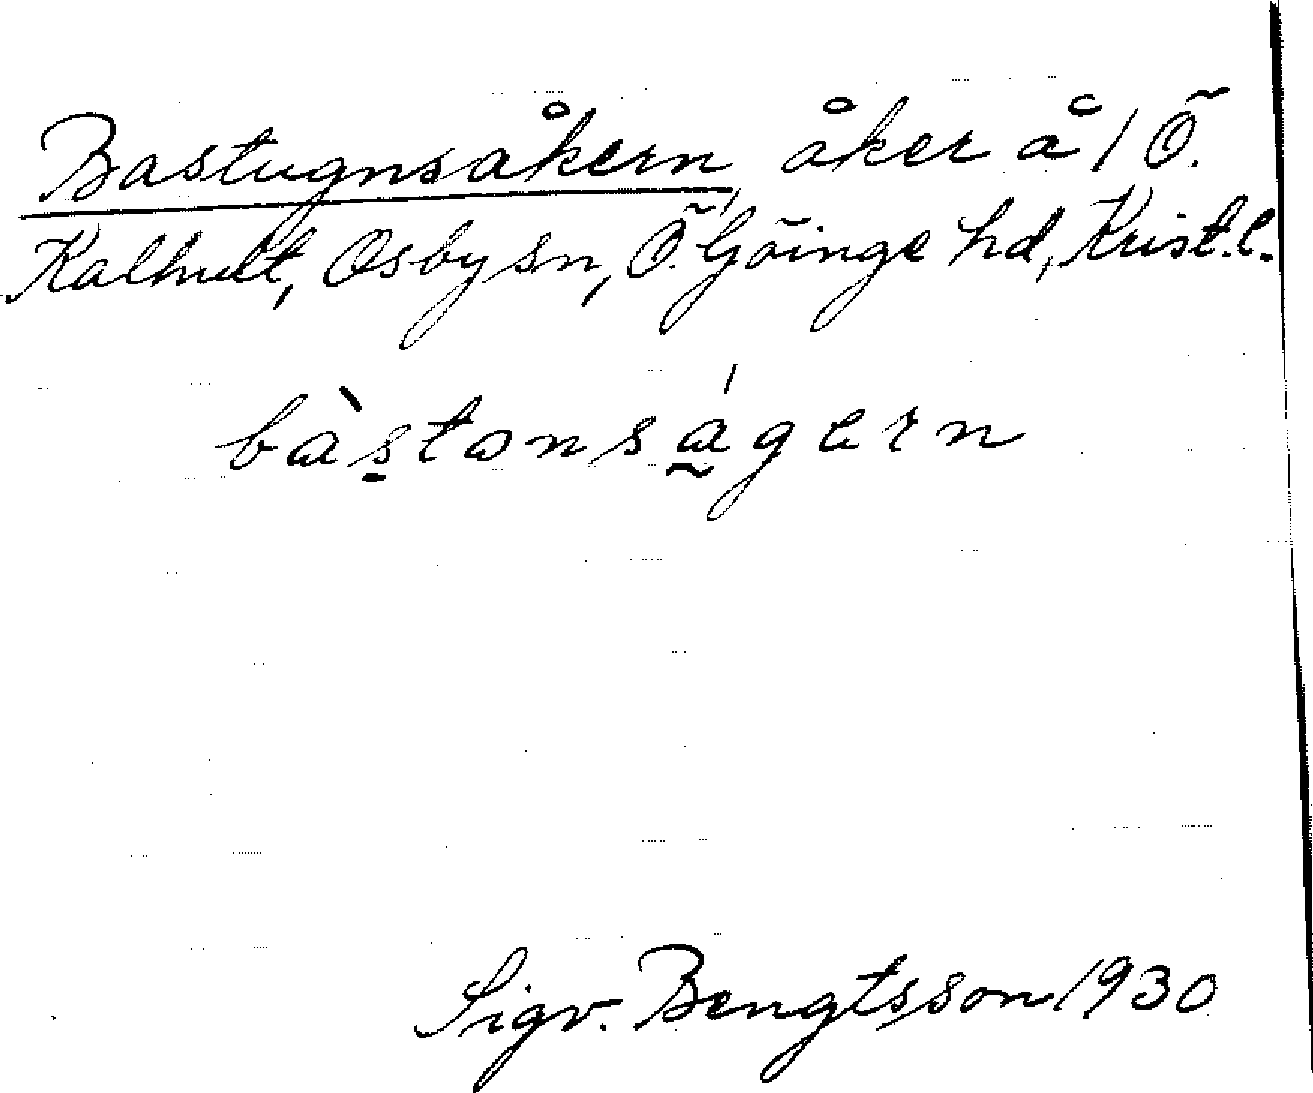 Bastugnsåkern, åker å 1 Ö.
Kalhult, Osby sn, Ö. Göinge hd, Krist. l.
bàstonságern
Sigv. Bengtsson 1930